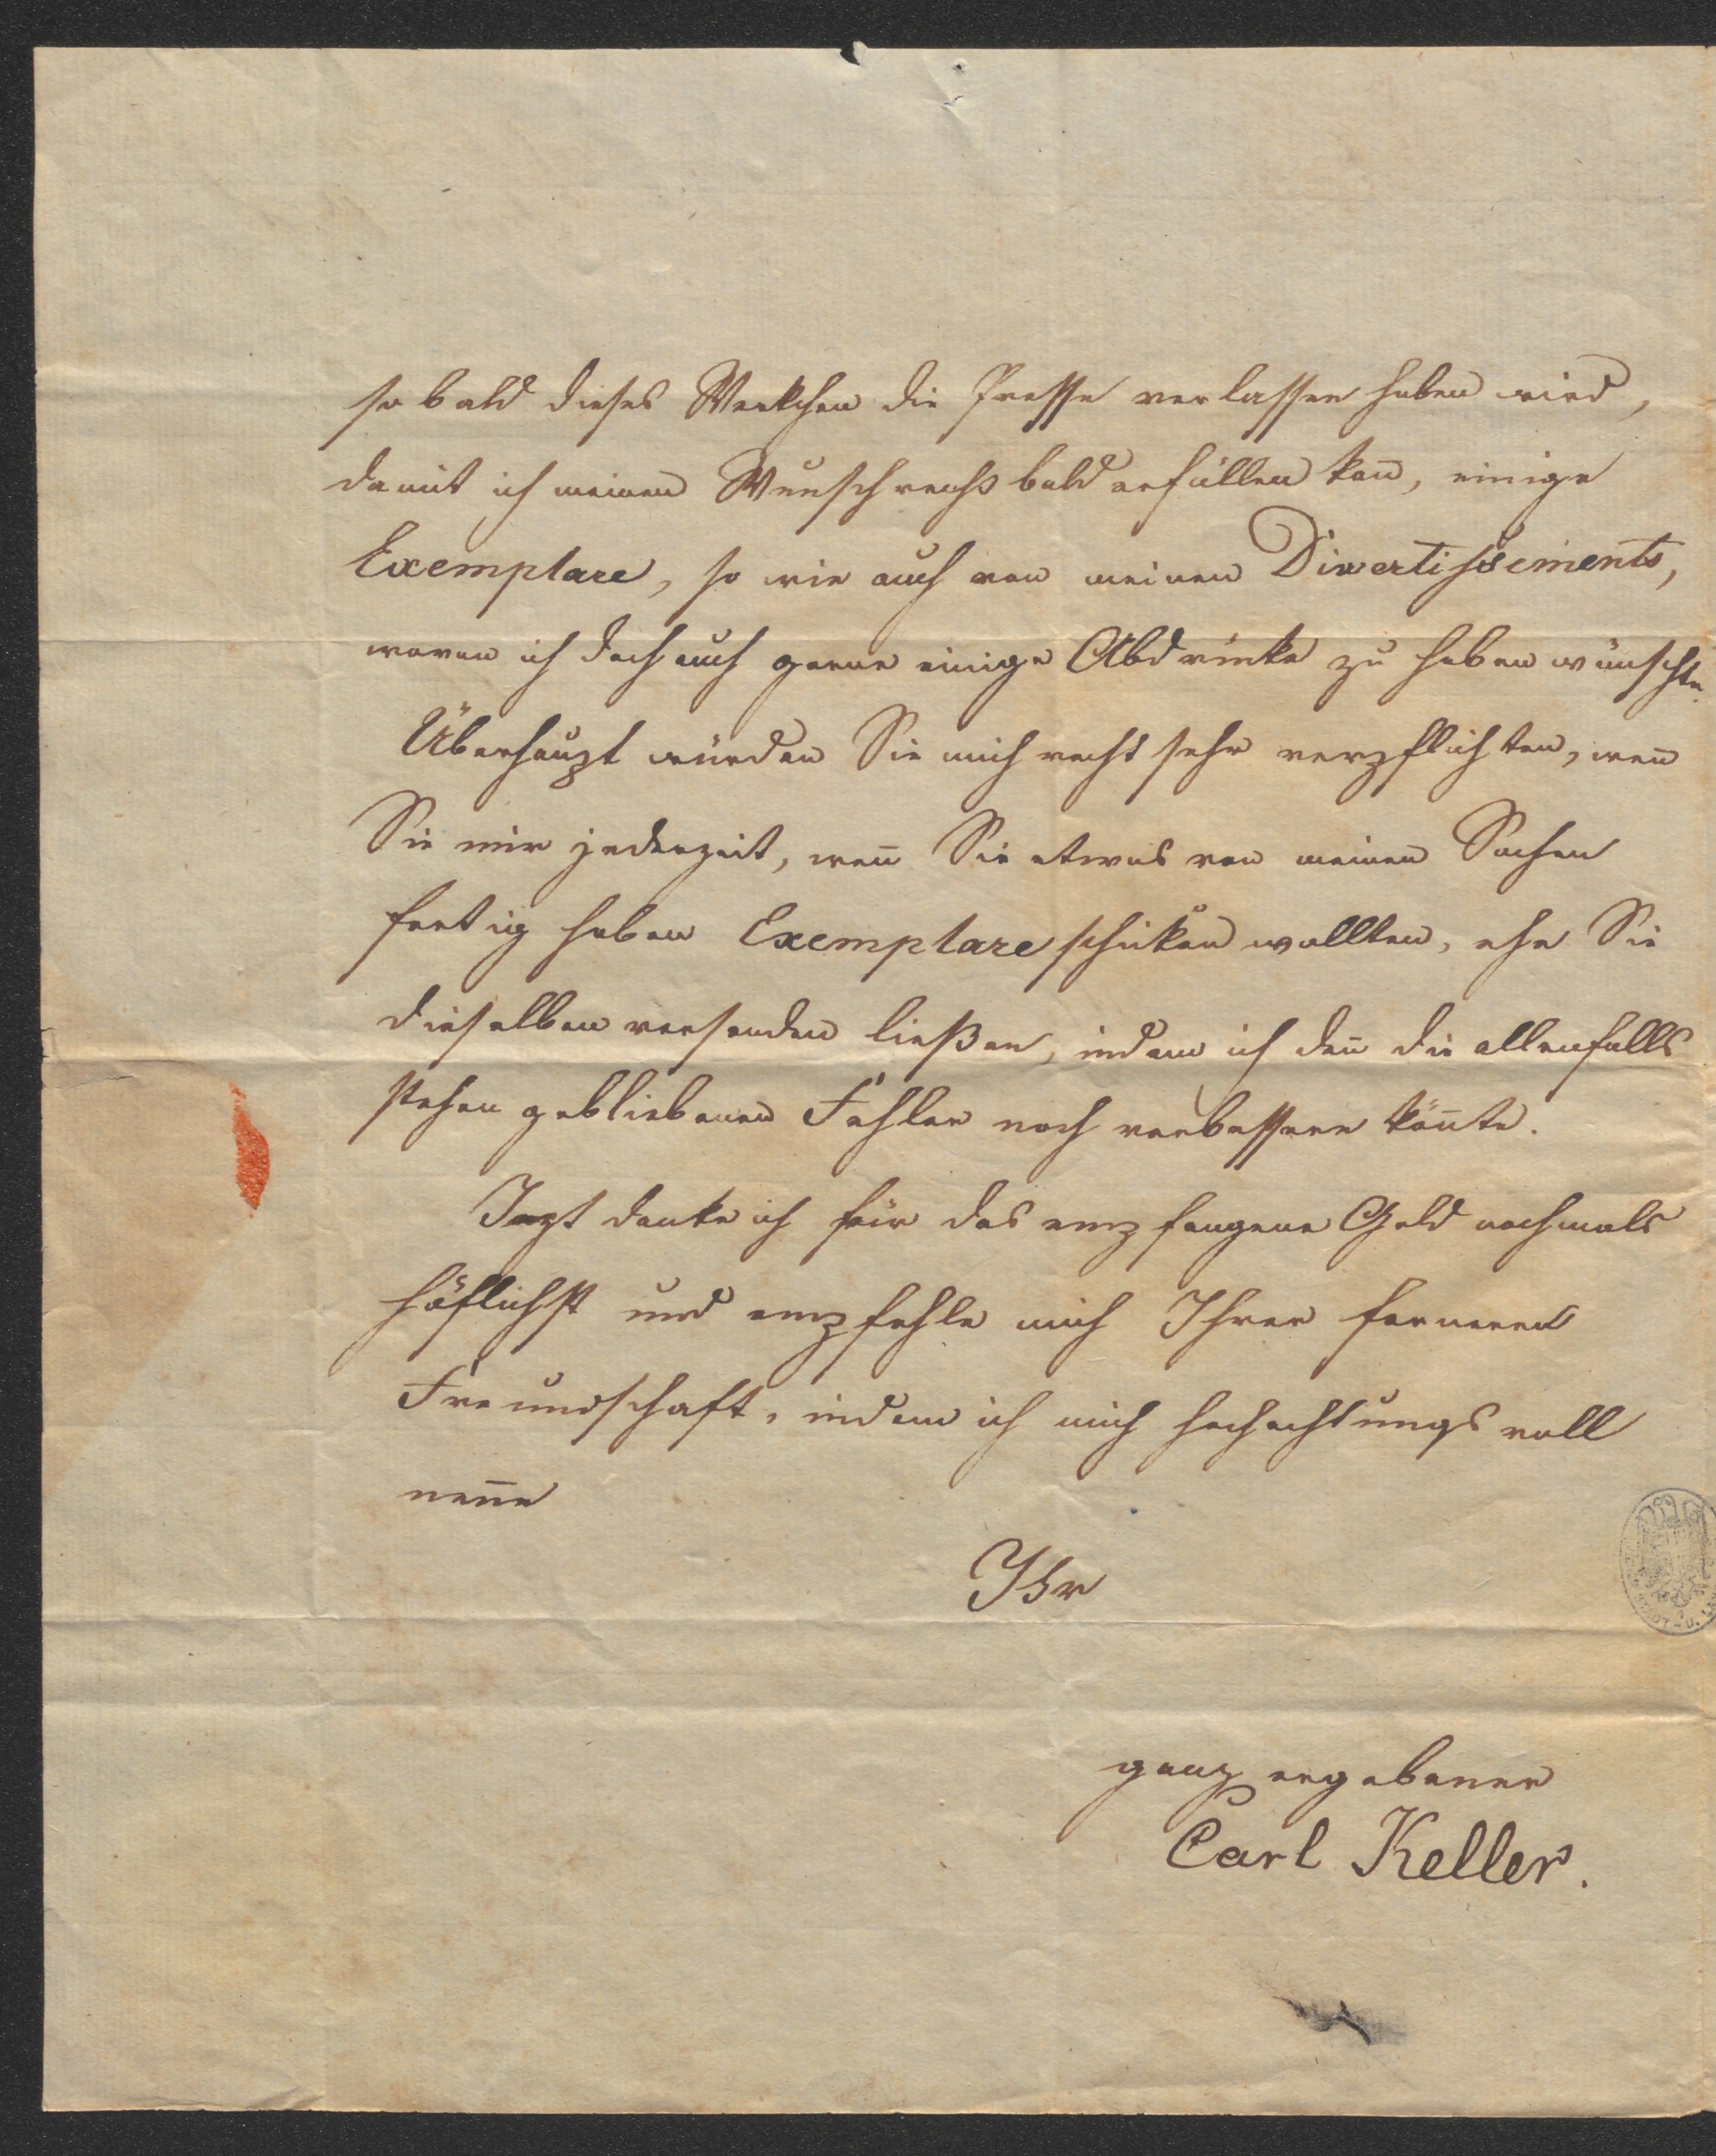 so bald dieses Werkchen die Presse verlassen haben wird,
damit ich meinen Wunsch recht bald erfüllen kan̄, einige
Exemplare, so wie auch von meinen Divertissements,
wovon ich doch auch gerne einige Abdrücke zu haben wünschte.
Überhaupt würden Sie mich recht sehr verpflichten, wen̄
Sie mir jederzeit, wen̄ Sie etwas von meinen Sachen
fertig haben Exemplare schicken wollten, ehe Sie
dieselben versenden ließen, indem ich dan̄ die allenfalls
stehen gebliebenen Fehler noch verbessern kön̄te.
Jezt danke ich für das empfangene Geld nochmals
höflichst und empfehle mich Ihrer ferneren
Freundschaft, indem ich mich hochachtungsvoll
nen̄e
Ihr
ganz ergebener
Carl Keller.